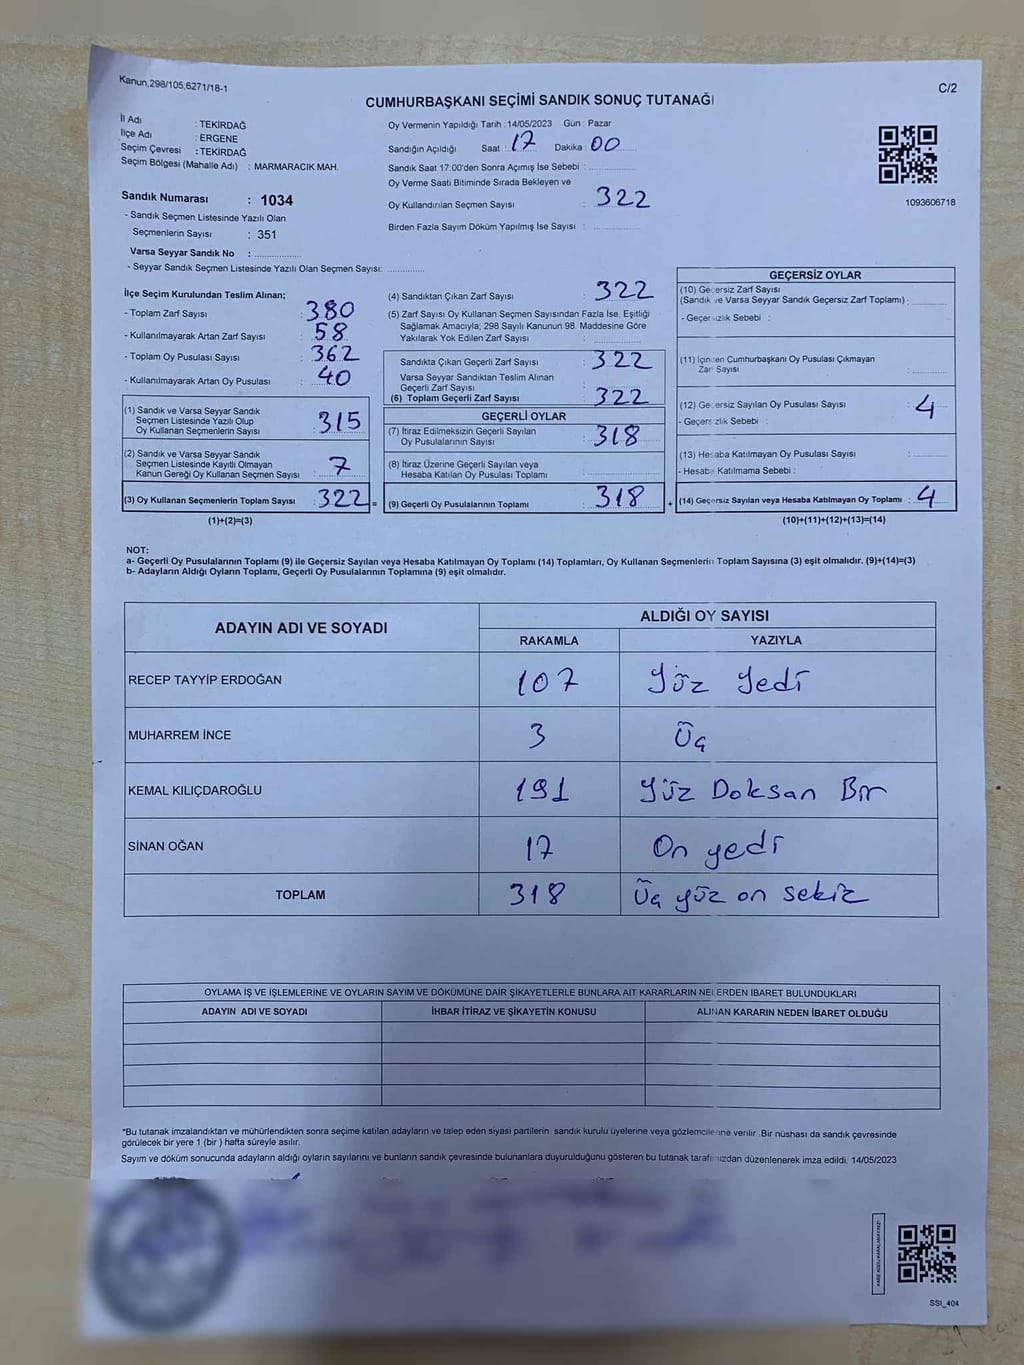 Kanun;298/105;6271/18-1
C/2
CUMHURBAŞKANI SEÇİMİ SANDIK SONUÇ TUTANAĞI
İl Adı : TEKİRDAĞ
İlçe Adı : ERGENE
Seçim Çevresi : TEKİRDAĞ
Seçim Bölgesi (Mahalle Adı) : MARMARACIK MAH.
Sandık Numarası : 1034
- Sandık Seçmen Listesinde Yazılı Olan
Seçmenlerin Sayısı : 351
Varsa Seyyar Sandık No :
- Seyyar Sandık Seçmen Listesinde Yazılı Olan Seçmen Sayısı:
Oy Vermenin Yapıldığı Tarih :14/05/2023 Gün : Pazar
Sandığın Açıldığı Saat : 17 Dakika : 00
Sandık Saat 17:00'den Sonra Açımış İse Sebebi :
Oy Verme Saati Bitiminde Sırada Bekleyen ve
Oy Kullandırılan Seçmen Sayısı : 322
Birden Fazla Sayım Döküm Yapılmış İse Sayısı :
1093606718
İlçe Seçim Kurulundan Teslim Alınan;
- Toplam Zarf Sayısı : 380
- Kullanılmayarak Artan Zarf Sayısı : 58
- Toplam Oy Pusulası Sayısı : 362
- Kullanılmayarak Artan Oy Pusulası : 40
(1) Sandık ve Varsa Seyyar Sandık
Seçmen Listesinde Yazılı Olup
Oy Kullanan Seçmenlerin Sayısı : 315
(2) Sandık ve Varsa Seyyar Sandık
Seçmen Listesinde Kayıtlı Olmayan
Kanun Gereği Oy Kullanan Seçmen Sayısı : 7
(3) Oy Kullanan Seçmenlerin Toplam Sayısı : 322 =
(1)+(2)=(3)
(4) Sandıktan Çıkan Zarf Sayısı : 322
(5) Zarf Sayısı Oy Kullanan Seçmen Sayısından Fazla İse, Eşitliği
Sağlamak Amacıyla, 298 Sayılı Kanunun 98. Maddesine Göre
Yakılarak Yok Edilen Zarf Sayısı :
Sandıkta Çıkan Geçerli Zarf Sayısı : 322
Varsa Seyyar Sandıktan Teslim Alınan
Geçerli Zarf Sayısı :
(6) Toplam Geçerli Zarf Sayısı : 322
GEÇERLİ OYLAR
(7) İtiraz Edilmeksizin Geçerli Sayılan
Oy Pusulalarının Sayısı : 318
(8) İtiraz Üzerine Geçerli Sayılan veya
Hesaba Katılan Oy Pusulası Toplamı :
(9) Geçerli Oy Pusulalarının Toplamı : 318 +
GEÇERSİZ OYLAR
(10) Geçersiz Zarf Sayısı
(Sandık ve Varsa Seyyar Sandık Geçersiz Zarf Toplamı) :
- Geçersizlik Sebebi :
(11) İçinden Cumhurbaşkanı Oy Pusulası Çıkmayan
Zarf Sayısı :
(12) Geçersiz Sayılan Oy Pusulası Sayısı : 4
- Geçersizlik Sebebi :
(13) Hesaba Katılmayan Oy Pusulası Sayısı :
- Hesaba Katılmama Sebebi :
(14) Geçersiz Sayılan veya Hesaba Katılmayan Oy Toplamı : 4
(10)+(11)+(12)+(13)=(14)
NOT:
a- Geçerli Oy Pusulalarının Toplamı (9) ile Geçersiz Sayılan veya Hesaba Katılmayan Oy Toplamı (14) Toplamları, Oy Kullanan Seçmenlerin Toplam Sayısına (3) eşit olmalıdır. (9)+(14)=(3)
b- Adayların Aldığı Oyların Toplamı, Geçerli Oy Pusulalarının Toplamına (9) eşit olmalıdır.
ADAYIN ADI VE SOYADI ALDIĞI OY SAYISI
RAKAMLA YAZIYLA
RECEP TAYYİP ERDOĞAN 107 Yüz Yedi
MUHARREM İNCE 3 Üç
KEMAL KILIÇDAROĞLU 191 Yüz Doksan Bir
SİNAN OĞAN 17 On yedi
TOPLAM 318 Üç yüz on sekiz
OYLAMA İŞ VE İŞLEMLERİNE VE OYLARIN SAYIM VE DÖKÜMÜNE DAİR ŞİKAYETLERLE BUNLARA AİT KARARLARIN NELERDEN İBARET BULUNDUKLARI
ADAYIN ADI VE SOYADI İHBAR İTİRAZ VE ŞİKAYETİN KONUSU ALINAN KARARIN NEDEN İBARET OLDUĞU
*Bu tutanak imzalandıktan ve mühürlendikten sonra seçime katılan adayların ve talep eden siyasi partilerin sandık kurulu üyelerine veya gözlemcilerine verilir .Bir nüshası da sandık çevresinde
görülecek bir yere 1 (bir ) hafta süreyle asılır.
Sayım ve döküm sonucunda adayların aldığı oyların sayılarını ve bunların sandık çevresinde bulunanlara duyurulduğunu gösteren bu tutanak tarafımızdan düzenlenerek imza edildi. 14/05/2023
KARE KODU KARALAMAYINIZ!
SSI_404